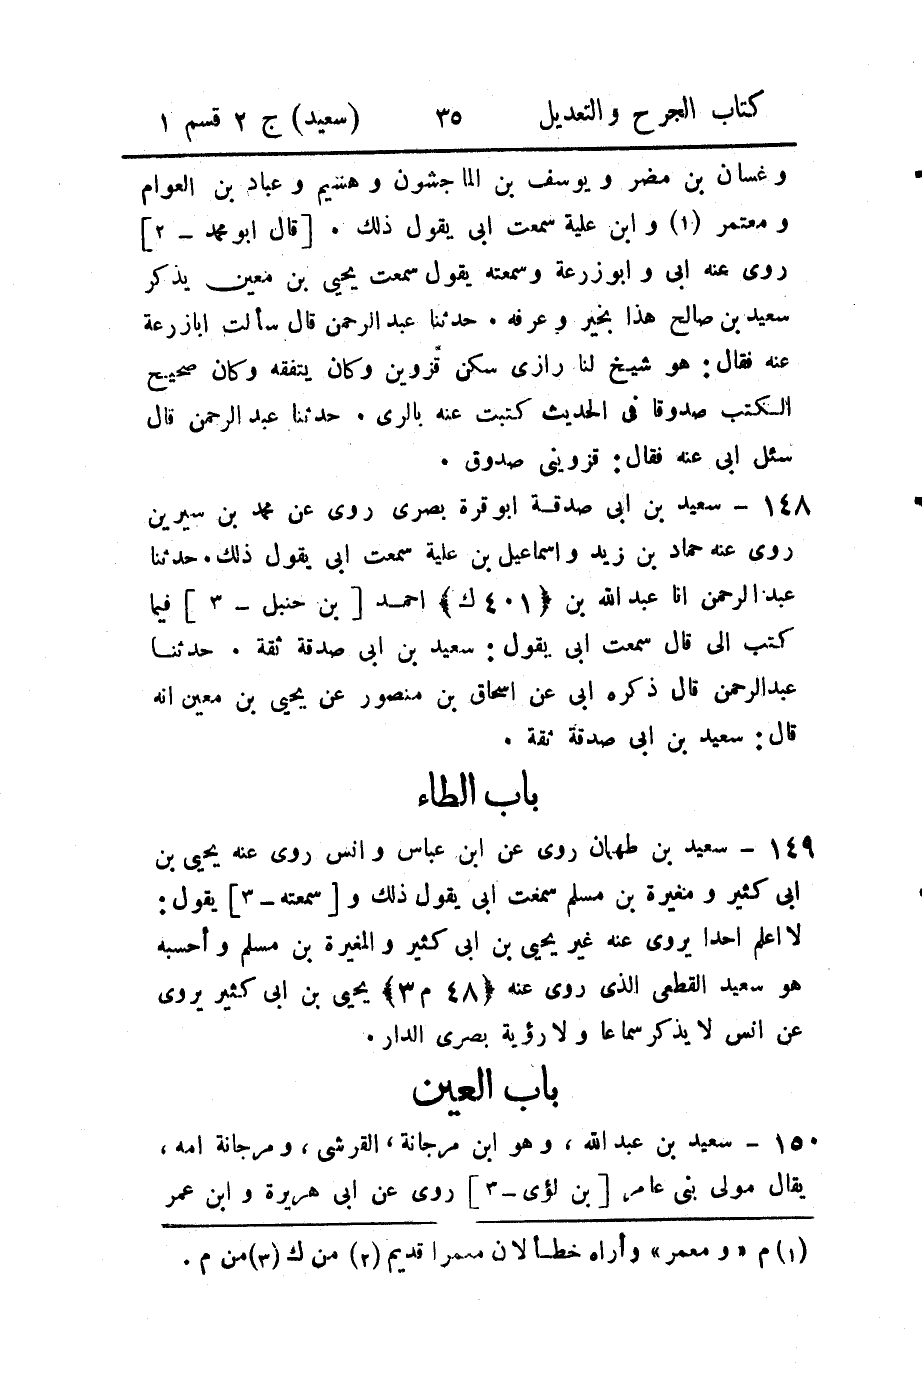 كتاب الجرح والتعديل ٣٥ (سعيد) ج ٢ قسم ١
وغسان بن مضر و يوسف بن الماجشون و هشيم و عباد بن العوام
و معتمر (١) و ابن علية سمعت ابى يقول ذلك . [قال ابو محمد - ٢]
روى عنه ابى و ابو زرعة وسمعته يقول سمعت يحيى بن معين يذكر
سعيد بن صالح هذا بخير و عرفه . حدثنا عبد الرحمن قال سألت ابا زرعة
عنه فقال: هو شيخ لنا رازى سكن قزوين وكان يتفقه وكان صحيح
الكتب صدوقا فى الحديث كتبت عنه بالرى . حدثنا عبد الرحمن قال
سئل ابى عنه فقال: قزوينى صدوق .
١٤٨ - سعيد بن ابى صدقة ابو قرة بصرى روى عن محمد بن سيرين
روى عنه حماد بن زيد و اسماعيل بن علية سمعت ابى يقول ذلك . حدثنا
عبد الرحمن انا عبد الله بن ﴿٤٠١ ك﴾ احمد [ بن حنبل - ٣ ] فيما
كتب الى قال سمعت ابى يقول: سعيد بن ابى صدقة ثقة . حدثنا
عبد الرحمن قال ذكره ابى عن اسحاق بن منصور عن يحيى بن معين انه
قال: سعيد بن ابى صدقة ثقة .
باب الطاء
١٤٩ - سعيد بن طهمان روى عن ابن عباس و انس روى عنه يحيى بن
ابى كثير و مغيرة بن مسلم سمعت ابى يقول ذلك و [ سمعته - ٣ ] يقول:
لا اعلم احدا يروى عنه غير يحيى بن ابى كثير و المغيرة بن مسلم و أحسبه
هو سعيد القطعى الذى روى عنه ﴿٤٨ م ٣﴾ يحيى بن ابى كثير يروى
عن انس لا يذكر سماعا و لا رؤية بصرى الدار .
باب العين
١٥٠ - سعيد بن عبد الله ، و هو ابن مرجانة ، القرشى ، و مرجانة امه ،
يقال مولى بنى عامر [ بن لؤى - ٣ ] روى عن ابى هريرة و ابن عمر
(١) م «و معمر» وأراه خطأ لان معمرا قديم (٢) من ك (٣) من م .